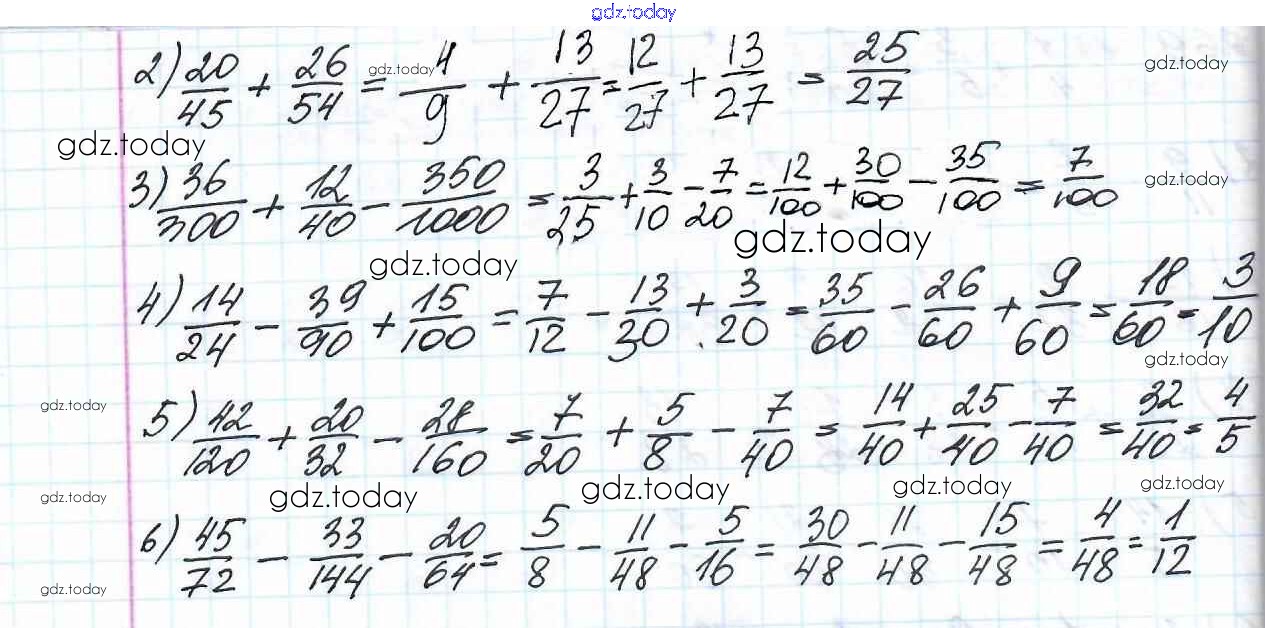 gdz.today
2) 20/45 + 26/54 = 4/9 + 13/27 = 12/27 + 13/27 = 25/27
gdz.today
gdz.today
gdz.today
3) 36/300 + 12/40 - 350/1000 = 3/25 + 3/10 - 7/20 = 12/100 + 30/100 - 35/100 = 7/100
gdz.today
gdz.today
gdz.today
4) 14/24 - 39/90 + 15/100 = 7/12 - 13/30 + 3/20 = 35/60 - 26/60 + 9/60 = 18/60 = 3/10
gdz.today
gdz.today
5) 42/120 + 20/32 - 28/160 = 7/20 + 5/8 - 7/40 = 14/40 + 25/40 - 7/40 = 32/40 = 4/5
gdz.today
gdz.today
gdz.today
gdz.today
gdz.today
6) 45/72 - 33/144 - 20/64 = 5/8 - 11/48 - 5/16 = 30/48 - 11/48 - 15/48 = 4/48 = 1/12
gdz.today